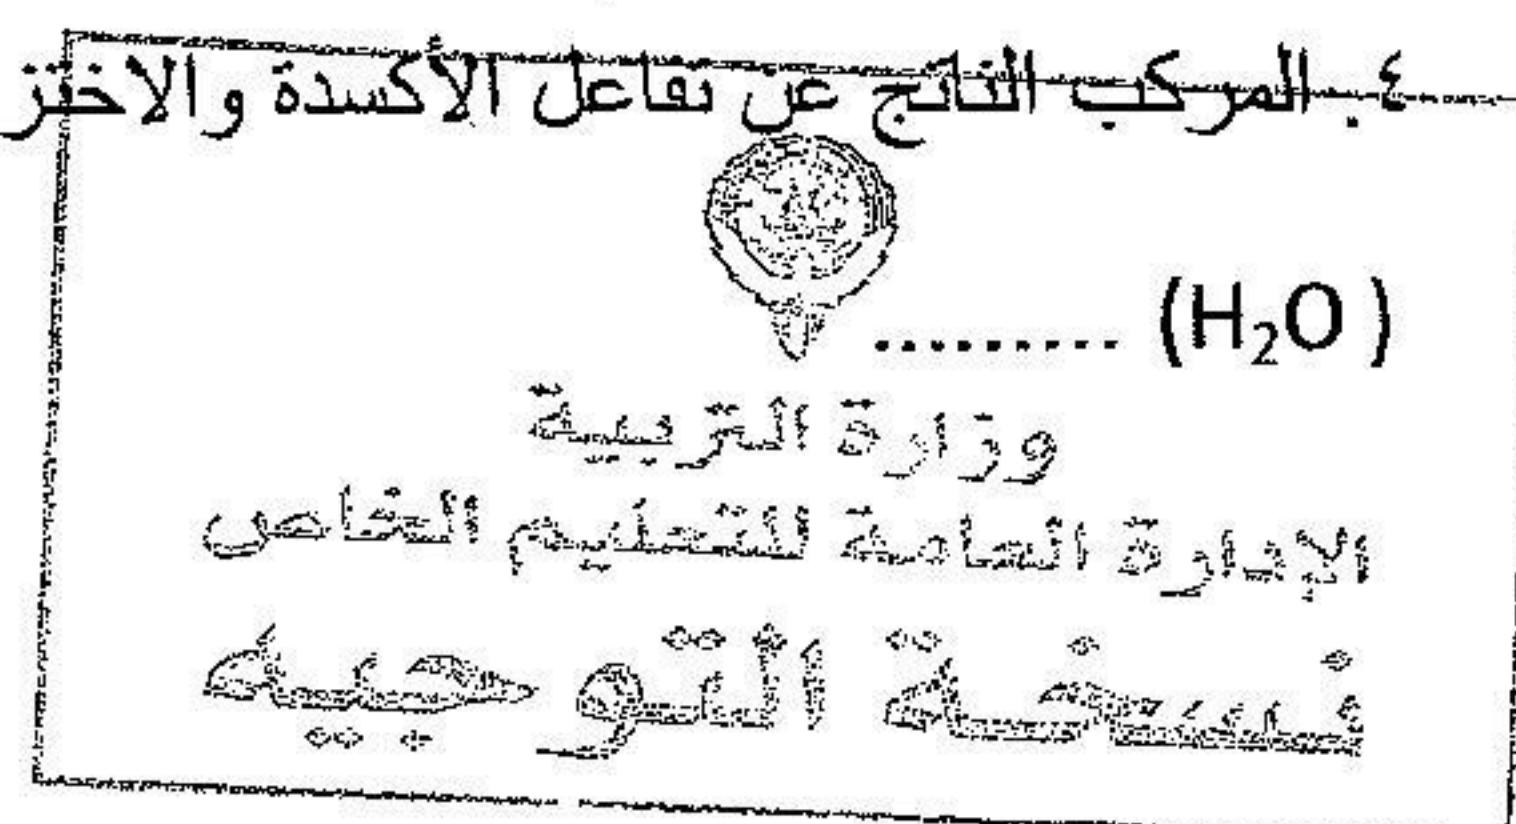 ٤. المركب الناتج عن تفاعل الأكسدة والاختز
(H₂O ) .........
وزارة التربية
الإدارة العامة للتعليم الخاص
نسخة التوجيه